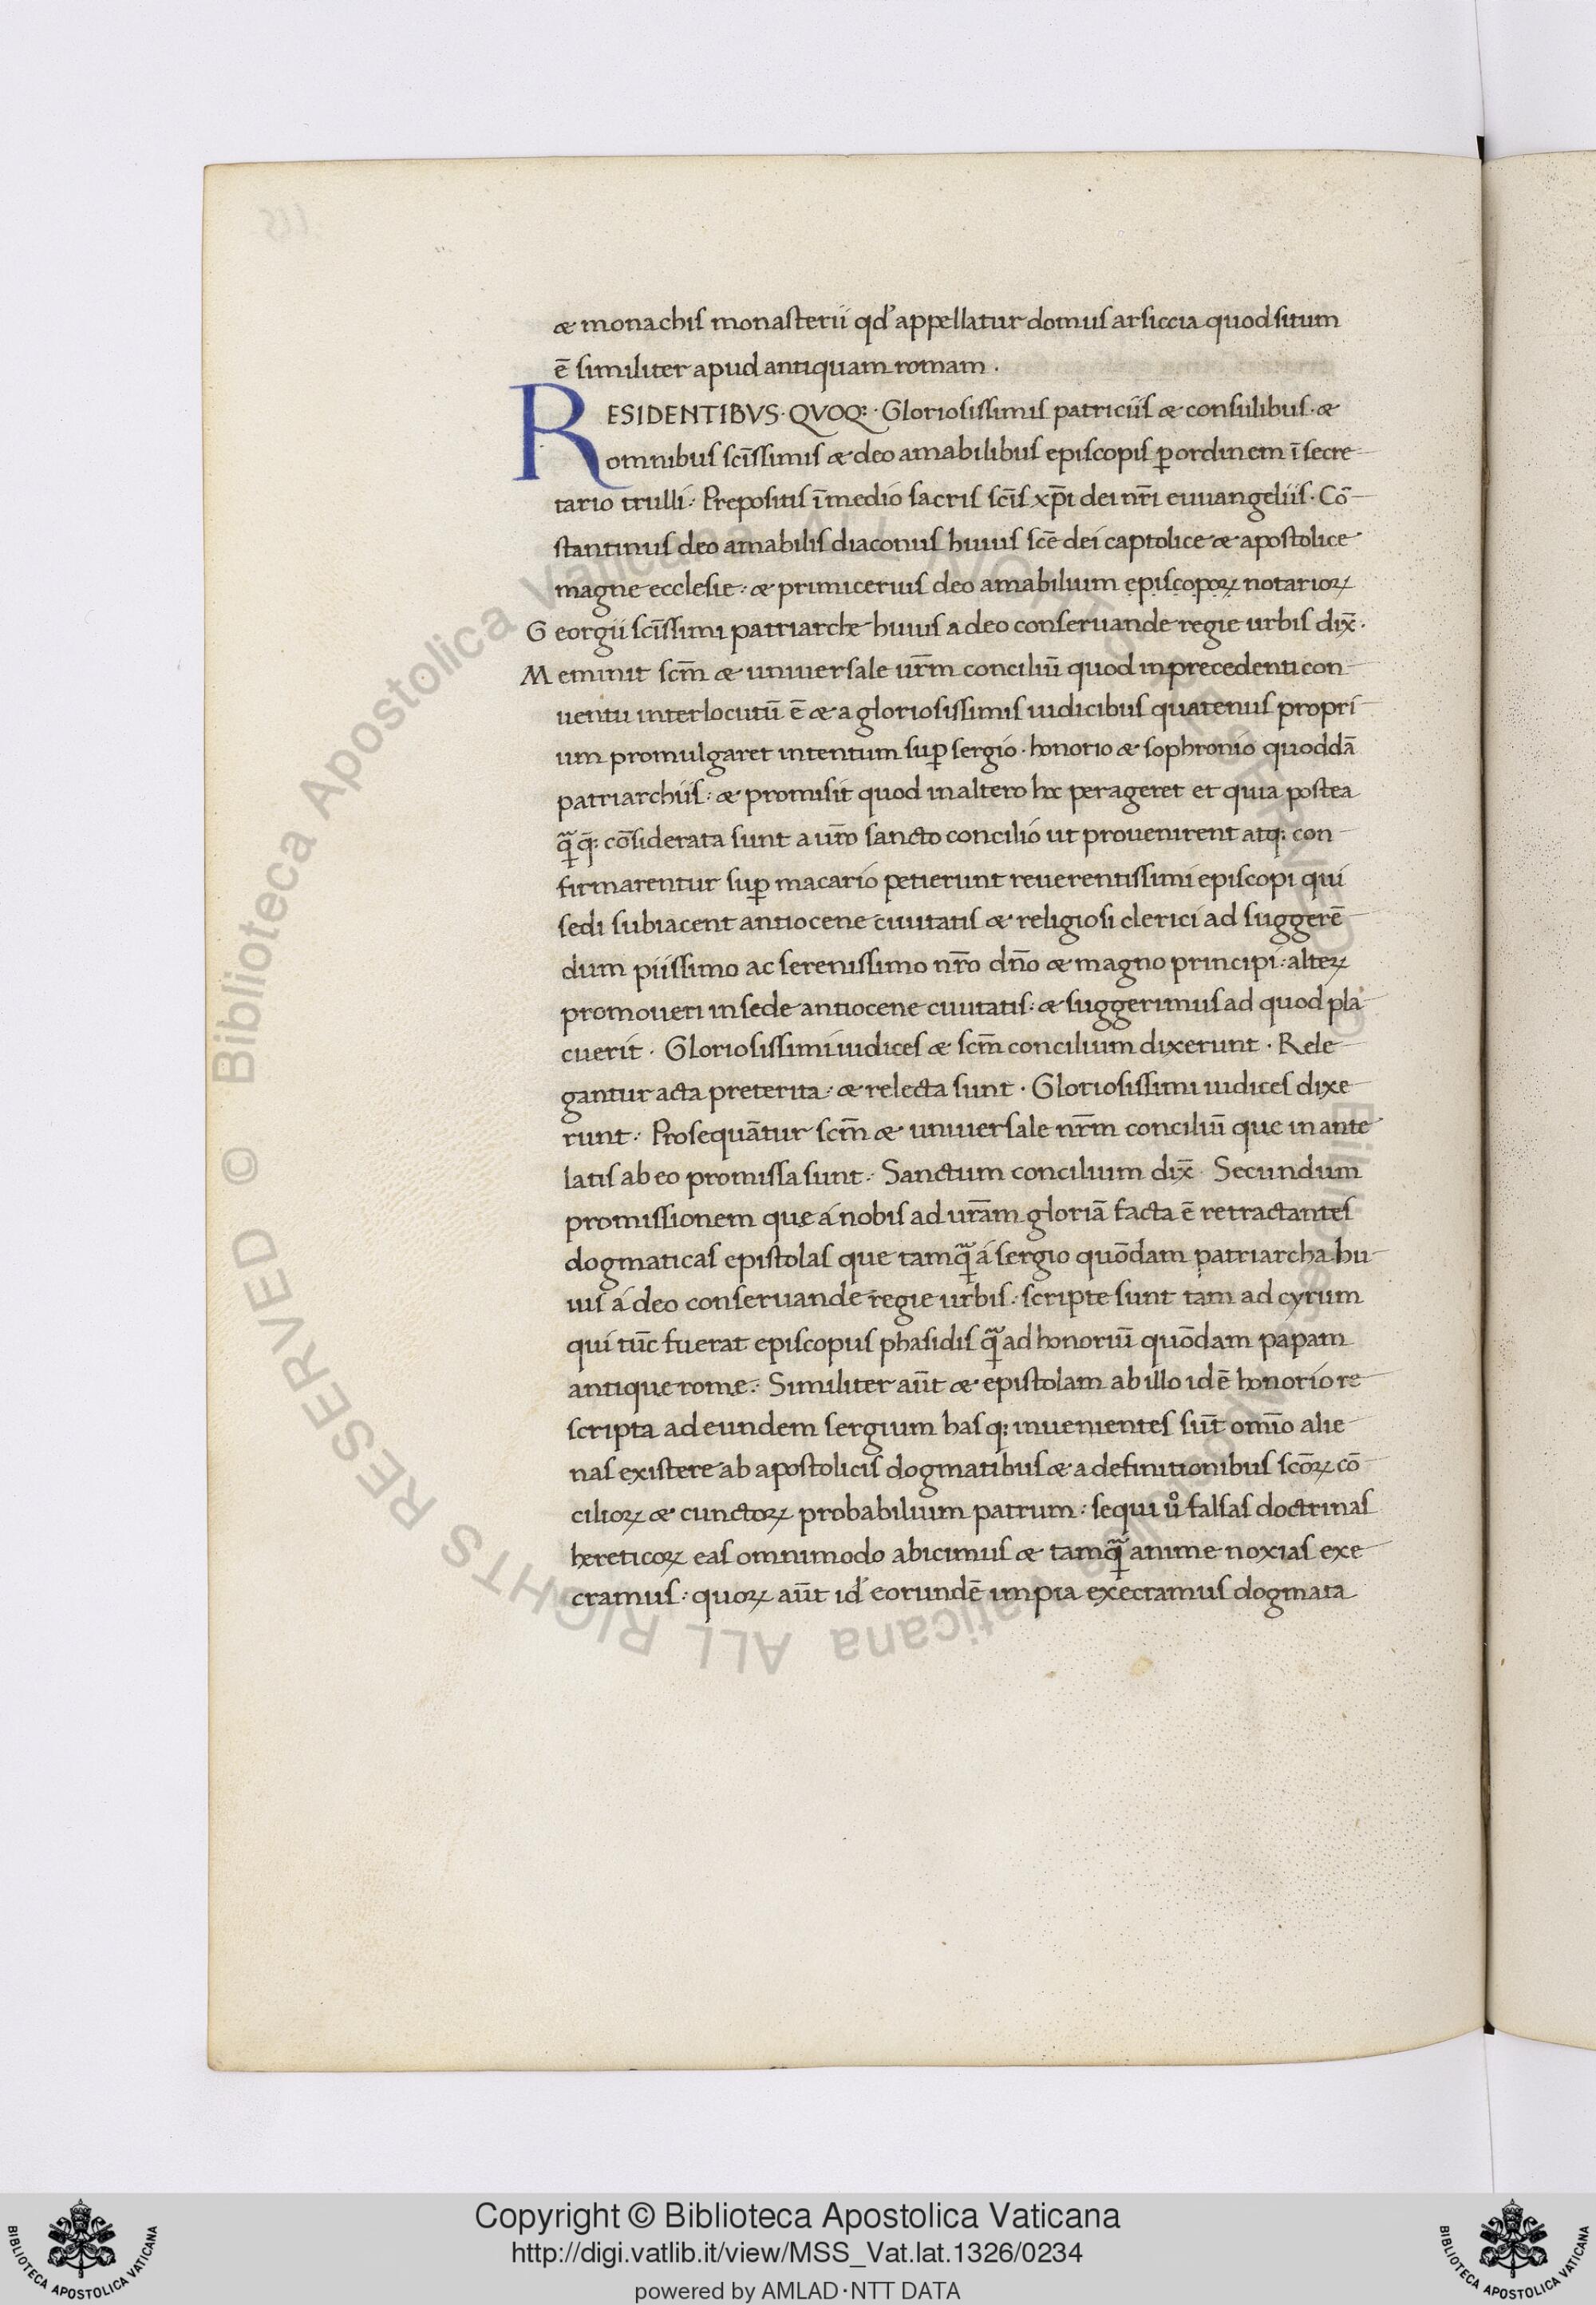 & monachis monasterii qd' appellatur domus arsiccia quod situm
ē similiter apud antiquam romam .
RESIDENTIBVS · QVOQ: · Gloriosissimis patriciis & consulibus · &
omnibus scīssimis & deo amabilibus episcopis ꝑ ordinem ī secre
tario trulli : Prepositis ī medio sacris scīs xp̄i dei nr̄i euuangeliis · Cō
stantinus deo amabilis diaconus huius scē dei captolice & apostolice
magne ecclesie : & primicerius deo amabilium episcopoꝝ notarioꝝ
Georgii scīssimi patriarche huius a deo conseruande regie urbis dix̄ .
Meminit scm̄ & uniuersale ur̄m conciliū quod in precedenti con
uentu interlocutū ē & a gloriosissimis iudicibus quatenus propri
um promulgaret intentum suꝑ sergio · honorio & sophronio quoddā
patriarchiis : & promisit quod in altero hoc perageret et quia postea
qua q̄: cōsiderata sunt a ur̄o sancto concilio ut prouenirent atq: con
firmarentur suꝑ macario petierunt reuerentissimi episcopi qui
sedi subiacent antiocene ciuitatis & religiosi clerici ad suggerē
dum piissimo ac serenissimo nr̄o dn̄o & magno principi : alteꝝ
promoueri in sede antiocene ciuitatis : & suggerimus ad quod pla
cuerit · Gloriosissimi iudices & scm̄ concilium dixerunt · Rele
gantur acta preterita : & relecta sunt · Gloriosissimi iudices dixe
runt : Prosequātur scm̄ & uniuersale nr̄m conciliū que in ante
latis ab eo promissa sunt : Sanctum concilium dix̄ · Secundum
promissionem que á nobis ad ur̄am gloriā facta ē retractantes
dogmaticas epistolas que tamqᷓ á sergio quōdam patriarcha hu
ius á deo conseruande regie urbis : scripte sunt tam ad cyrum
qui tūc fuerat episcopus phasidis qᷓ ad honoriū quōdam papam
antique rome : Similiter aūt & epistolam ab illo idē honorio re
scripta ad eundem sergium hasq: inuenientes sūt om̄io alie
nas existere ab apostolicis dogmatibus & a definitionibus scōꝝ cō
cilioꝝ & cunctoꝝ probabilium patrum : sequi ů falsas doctrinas
hereticoꝝ eas omnimodo abicimus & tamqᷓ anime noxias exe
cramus : quoꝝ aūt id' eorundē impia execramus dogmata
Copyright © Biblioteca Apostolica Vaticana
http://digi.vatlib.it/view/MSS_Vat.lat.1326/0234
powered by AMLAD·NTT DATA
BIBLIOTECA APOSTOLICA VATICANA
BIBLIOTECA APOSTOLICA VATICANA
© Biblioteca Apostolica Vaticana ALL RIGHTS RESERVED